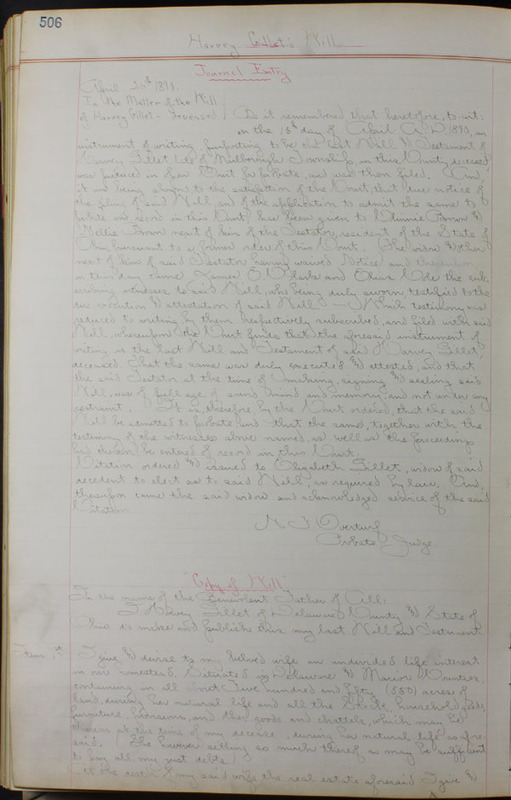 506
Harvey Gillet's Will
Journal Entry
April 20th 1893.
In the Matter of the Will
of Harvey Gillet - Deceased } Be it remembered that heretofore, to wit:
on the 15th day of April A.D. 1893, an
instrument of writing, purporting to be the last Will & Testament of
Harvey Gillet late of Township, in this County deceased
was produced in open Court for probate, and was then filed. And
it now being shown to the satisfaction of the Court, that due notice of
the filing of said Will, and of the application to admit the same to
probate and record in this Court, has been given to Minnie &
Nellie next of kin of the Testator, resident of the State of
Ohio pursuant to a former order of this Court. The widow & other
next of kin of said Testator having waived notice and thereupon
on this day came James and the sub
scribing witnesses to said Will, who being duly sworn testified to the
due execution & attestation of said Will - Which testimony was
reduced to writing by them respectively subscribed, and filed with said
Will, whereupon the Court finds that the aforesaid instrument of
writing is the last Will and Testament of said Harvey Gillet
deceased, that the same was duly executed & attested, and that
the said Testator at the time of making, signing & sealing said
Will, was of full age of sound mind and memory, and not under any
restraint. It is, therefore, by the Court ordered, that the said
Will be admitted to probate, and that the same, together with the
testimony of the witnesses above named, as well as the proceedings
had thereon be entered of record in this Court.
Citation ordered & issued to Elizabeth Gillet, widow of said
decedent to elect as to said Will, as required by law. And,
thereupon came the said widow and acknowledged service of the said
Citation.
N. F. Overturf
Probate Judge
"Copy of Will"
In the name of the Benevolent Father of All:
I Harvey Gillet of Delaware County & State of
Ohio do make and publish this my last Will and Testament.
Item 1st I give & devise to my beloved wife an undivided life interest
in our homestead, situated in Delaware & Marion Counties,
containing in all Five hundred and fifty (550) acres of
land, during her natural life and all the stock, household goods,
furniture, provisions, and other goods and chattels, which may be
thereon at the time of my decease, during her natural life as afore
said. She however selling so much thereof as may be sufficient
to pay all my just debts.
At the death of my said wife the real estate aforesaid I give &